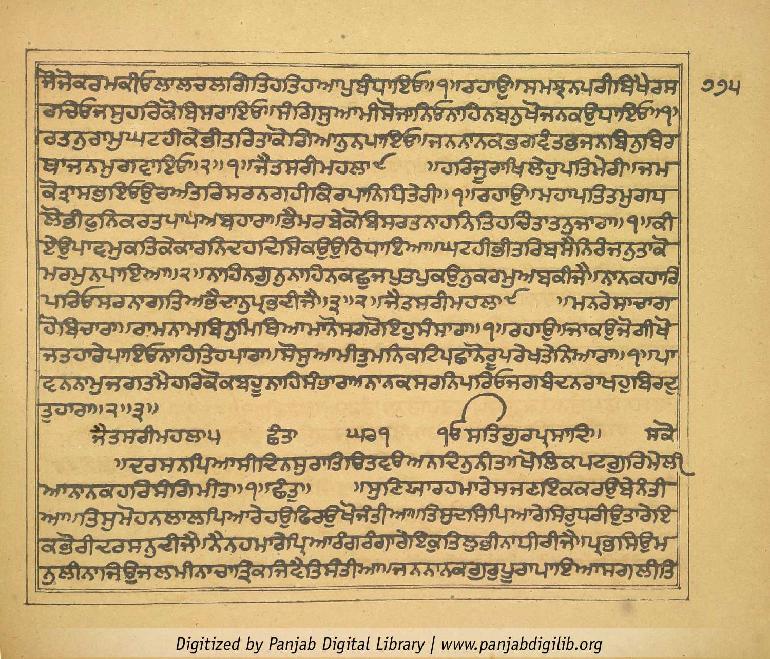 ੭੭੫
ਜੋਜੋਕਰਮਕੀਓਲਾਲਚਲਗਿਤਿਹਤਿਹਆਪੁਬੰਧਾਇਓ॥੧॥ਰਹਾਉ॥ਸਮਝਨਪਰੀਬਿਖੈਰਸ
ਰਚਿਓਜਸੁਹਰਿਕੋਬਿਸਰਾਇਓ॥ਸੰਗਿਸੁਆਮੀਸੋਜਾਨਿਓਨਾਹਿਨਬਨੁਖੋਜਨਕਉਧਾਇਓ॥੧॥
ਰਤਨੁਰਾਮੁਘਟਹੀਕੇਭੀਤਰਿਤਾਕੋਗਿਆਨੁਨਪਾਇਓ॥ਜਨਨਾਨਕਭਗਵੰਤਭਜਨਬਿਨੁਬਿਰ
ਥਾਜਨਮੁਗਵਾਇਓ॥੨॥੧॥ਜੈਤਸਰੀਮਹਲਾ੯ ॥ਹਰਿਜੂਰਾਖਿਲੇਹੁਪਤਿਮੇਰੀ॥ਜਮ
ਕੋਤ੍ਰਾਸਭਇਓਉਰਅੰਤਰਿਸਰਨਗਹੀਕਿਰਪਾਨਿਧਿਤੇਰੀ॥੧॥ਰਹਾਉ॥ਮਹਾਪਤਿਤਮੁਗਧ
ਲੋਭੀਫੁਨਿਕਰਤਪਾਪਅਬਹਾਰਾ॥ਭੈਮਰਬੇਕੋਬਿਸਰਤਨਾਹਨਿਤਿਹਚਿੰਤਾਤਨੁਜਾਰਾ॥੧॥ਕੀ
ਏਉਪਾਵਮੁਕਤਿਕੇਕਾਰਨਿਦਹਦਿਸਿਕਉਉਠਿਧਾਇਆ॥ਘਟਹੀਭੀਤਰਿਬਸੈਨਿਰੰਜਨੁਤਾਕੋ
ਮਰਮੁਨਪਾਇਆ॥੨॥ਨਾਹਿਨਗੁਨੁਨਾਹਿਨਕਛੁਜਪੁਤਪੁਕਉਨੁਕਰਮੁਅਬਕੀਜੈ॥ਨਾਨਕਹਾਰਿ
ਪਰਿਓਸਰਨਾਗਤਿਅਭੈਦਾਨੁਪ੍ਰਭਦੀਜੈ॥੩॥੨॥ਜੈਤਸਰੀਮਹਲਾ੯ ॥ਮਨਰੇਸਾਚਾਗ
ਹੋਬਿਚਾਰਾ॥ਰਾਮਨਾਮਬਿਨੁਮਿਥਿਆਮਾਨੋਸਗਰੋਇਹੁਸੰਸਾਰਾ॥੧॥ਰਹਾਉ॥ਜਾਕਉਜੋਗੀਖੋ
ਜਤਹਾਰੇਪਾਇਓਨਾਹਿਤਿਹਪਾਰਾ॥ਸੋਸੁਆਮੀਤੁਮਨਿਕਟਿਪਛਾਨੋਰੂਪਰੇਖਤੇਨਿਆਰਾ॥੧॥ਪਾ
ਵਨਨਾਮੁਜਗਤਮੈਹਰਿਕੋਕਬਹੂਨਾਹਿਸੰਭਾਰਾ॥ਨਾਨਕਸਰਨਿਪਰਿਓਜਗਬੰਦਨਰਾਖਹੁਬਿਰਦੁ
ਤੁਹਾਰਾ॥੨॥੩॥
ਜੈਤਸਰੀਮਹਲਾ੫ ਛੰਤਾ ਘਰ੧ ੴਸਤਿਗੁਰਪ੍ਰਸਾਦਿ॥ ਸਕੋ
॥ਦਰਸਨਪਿਆਸੀਦਿਨਸੁਰਾਤਿਚਿਤਵਉਅਨਦਿਨੁਨੀਤ॥ਖੋਲਿਕਪਟਗੁਰਿਮੇਲੀ
ਆਨਾਨਕਹਰਿਸੰਗਿਮੀਤ॥੧॥ਛੰਤੁ॥ ॥ਸੁਣਿਯਾਰਹਮਾਰੇਸਜਣਇਕਕਰਉਬੇਨੰਤੀ
ਆ॥ਤਿਸੁਮੋਹਨਲਾਲਪਿਆਰੇਹਉਫਿਰਉਖੋਜੰਤੀਆ॥ਤਿਸੁਦਸਿਪਿਆਰੇਸਿਰੁਧਰੀਉਤਾਰੇਇ
ਕਭੋਰੀਦਰਸਨੁਦੀਜੈ॥ਨੈਨਹਮਾਰੇਪ੍ਰਿਅਰੰਗਰੰਗਾਰੇਇਕੁਤਿਲੁਭੀਨਾਧੀਰੀਜੈ॥ਪ੍ਰਭਸਿਉਮ
ਨੁਲੀਨਾਜਿਉਜਲਮੀਨਾਚਾਤ੍ਰਿਕਜਿਵੈਤਿਸੰਤੀਆ॥ਜਨਨਾਨਕਗੁਰੁਪੂਰਾਪਾਇਆਸਗਲੀਤਿ
Digitized by Panjab Digital Library | www.panjabdigilib.org